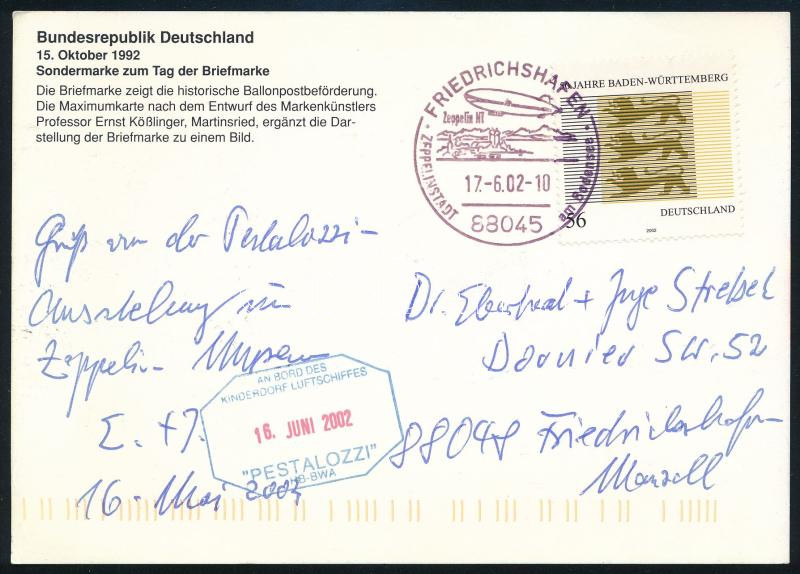 Bundesrepublik Deutschland
15. Oktober 1992
Sondermarke zum Tag der Briefmarke
Die Briefmarke zeigt die historische Ballonpostbeförderung.
Die Maximumkarte nach dem Entwurf des Markenkünstlers
Professor Ernst Kößlinger, Martinsried, ergänzt die Dar-
stellung der Briefmarke zu einem Bild.
FRIEDRICHSHAFEN
Zeppelin NT
· ZEPPELINSTADT
am Bodensee ·
17.-6.02-10
88045
50 JAHRE BADEN-WÜRTTEMBERG
56
DEUTSCHLAND
2002
Gruß von der Pestalozzi-
Ausstellung im
Zeppelin Museum
E. + J.
16. Mai 2002
AN BORD DES
KINDERDORF LUFTSCHIFFES
16. JUNI 2002
"PESTALOZZI"
HB-BWA
Dr. Eberhard + Inge Strebel
Dornier Str. 52
88048 Friedrichshafen
Manzell